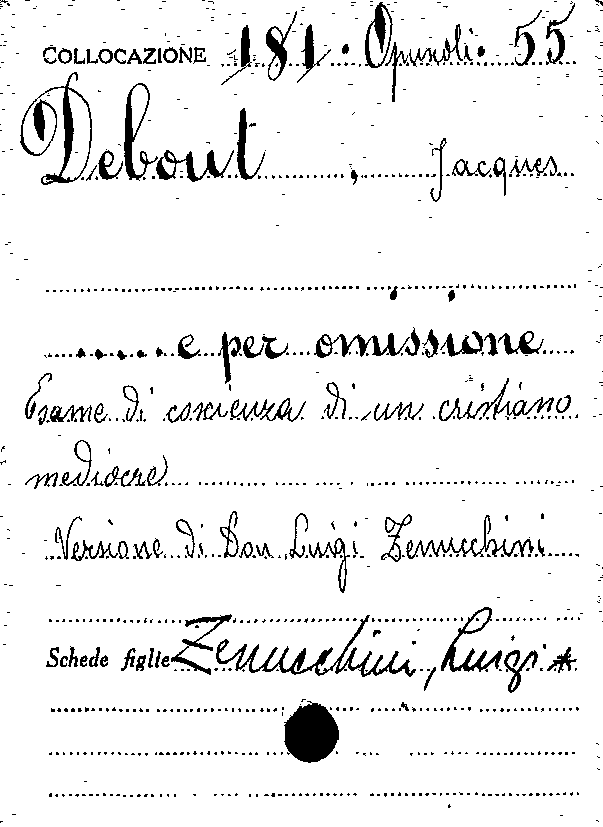 COLLOCAZIONE 181. Opuscoli. 55
Debout, Jacques
.....e per omissione
Esame di coscienza di un cristiano
mediocre
Versione di Don Luigi Zenucchini
Schede figlie Zenucchini, Luigi *